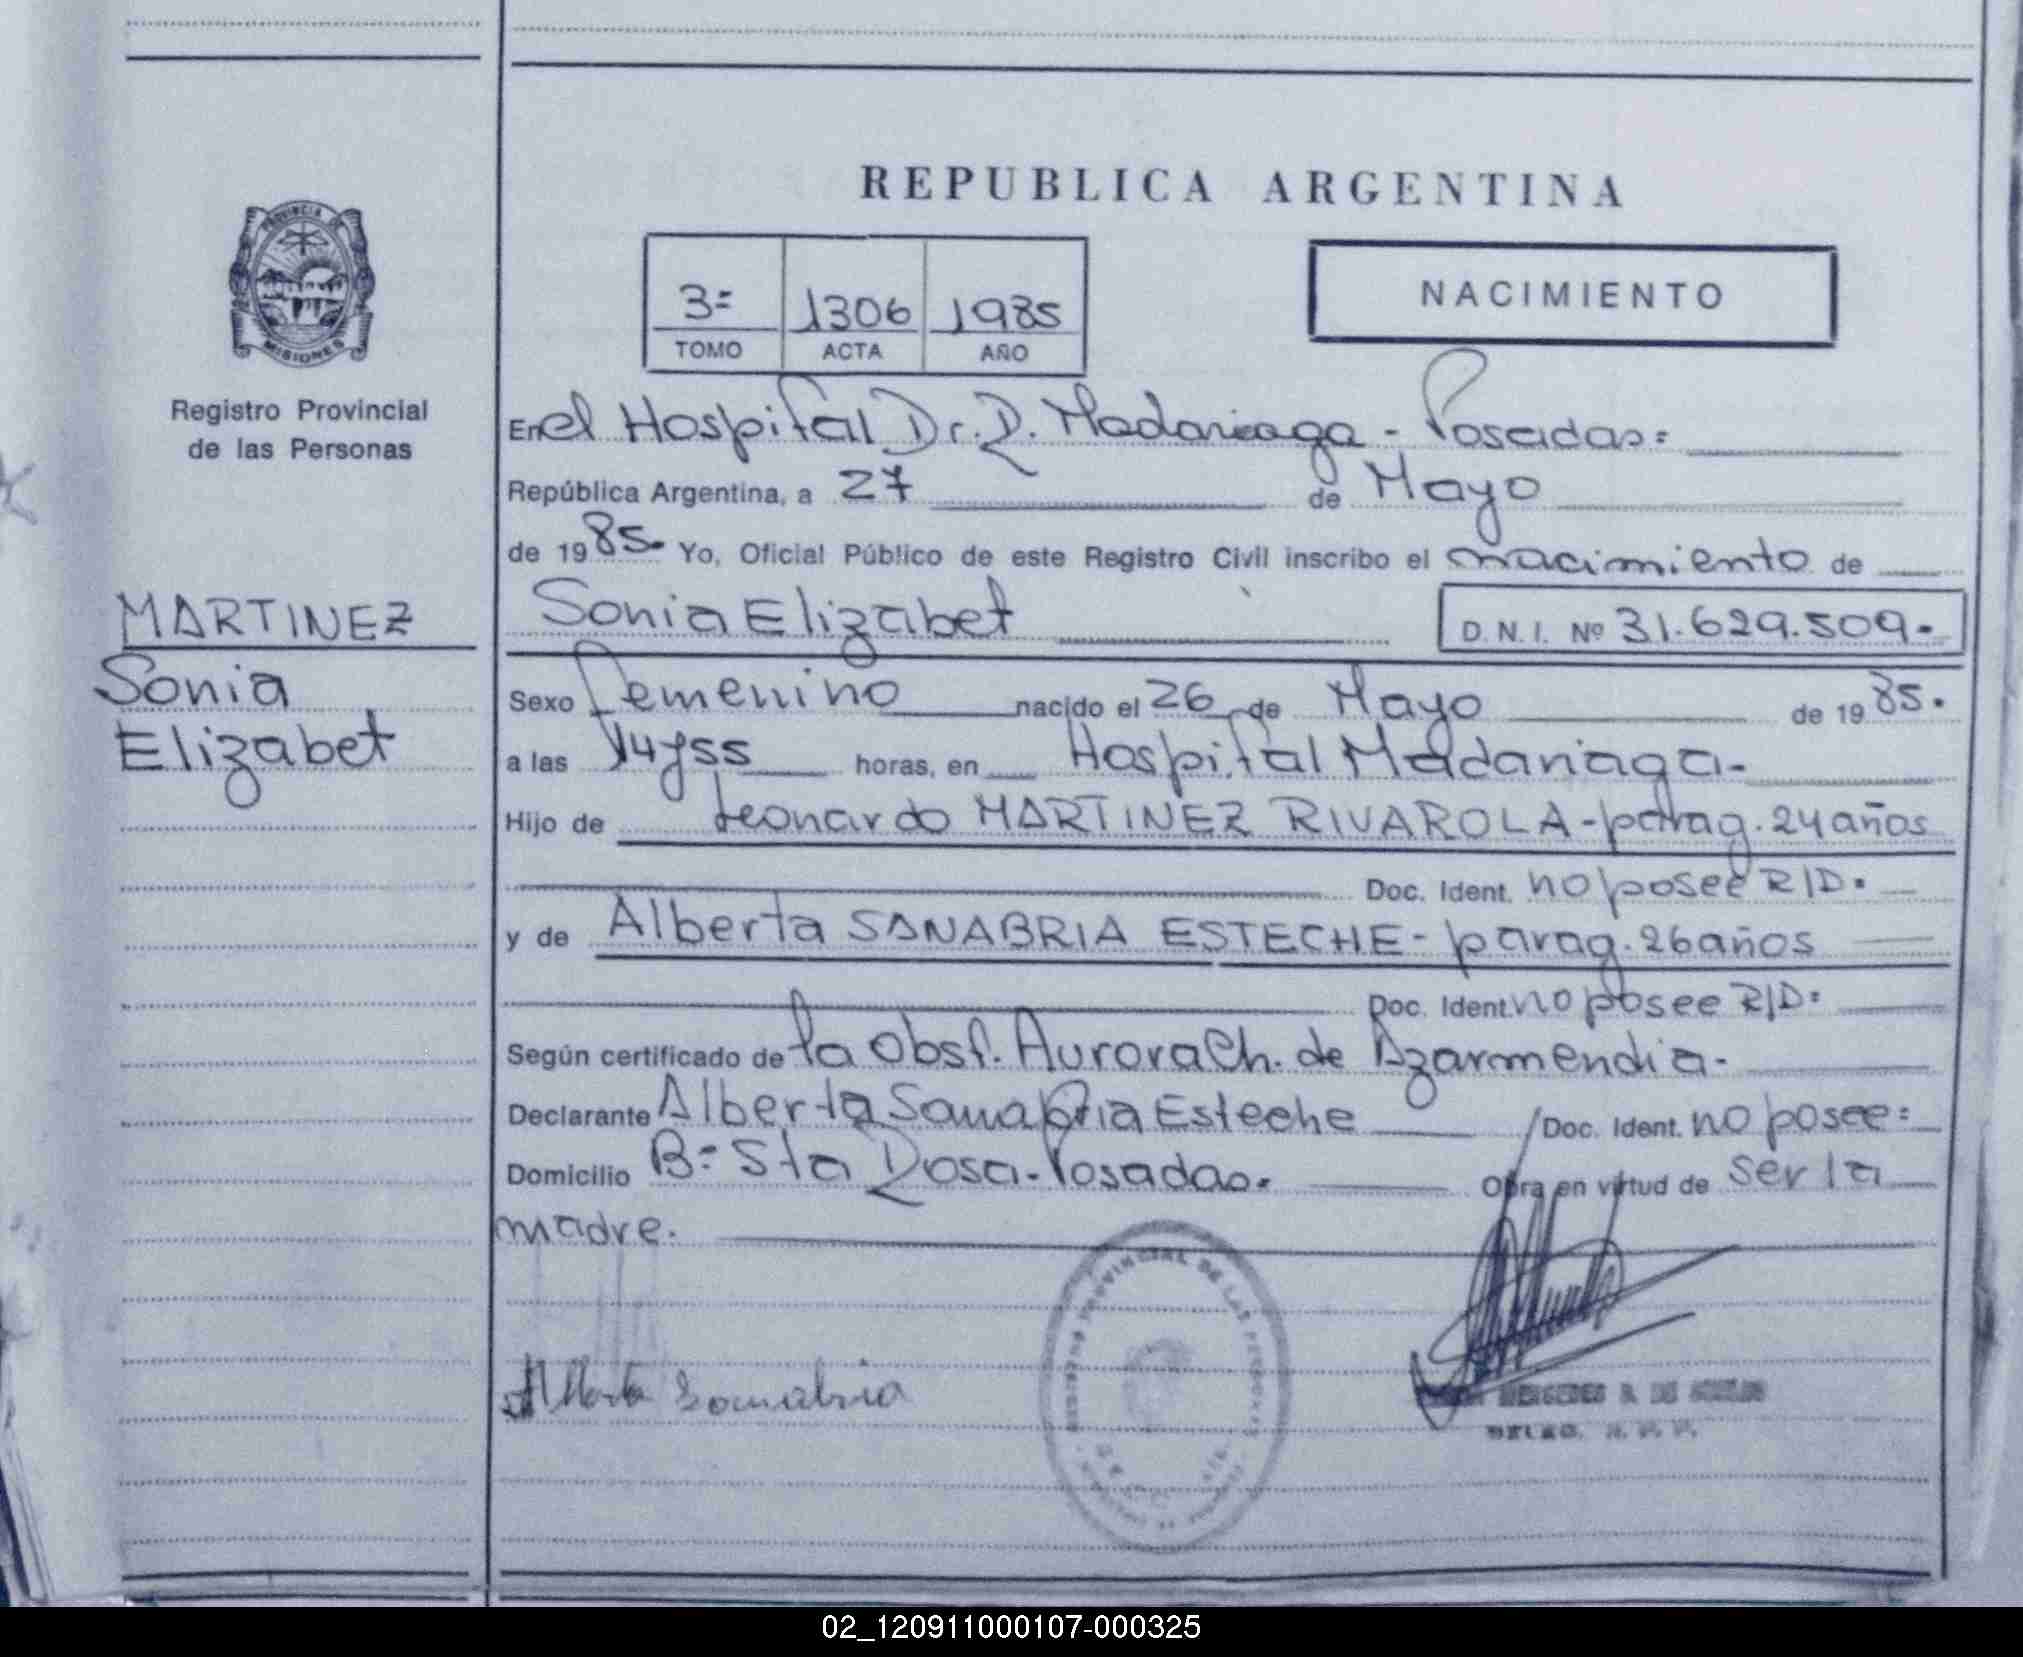 REPUBLICA ARGENTINA
PROVINCIA DE
MISIONES
Registro Provincial
de las Personas
3=
1306
1985
TOMO
ACTA
AÑO
NACIMIENTO
En el Hospital Dr. R. Madariaga - Posadas=
República Argentina, a 27 de Mayo
de 1985. Yo, Oficial Público de este Registro Civil inscribo el nacimiento de
MARTINEZ
Sonia
Elizabet
Sonia Elizabet
D. N. I. Nº 31.629.509.-
Sexo Femenino nacido el 26 de Mayo de 1985.
a las 14y55 horas, en Hospital Madariaga-
Hijo de Leonardo MARTINEZ RIVAROLA - parag. 24 años
Doc. Ident. no posee R/D.
y de Alberta SANABRIA ESTECHE - parag. 26 años
Doc. Ident. no posee R/D=
Según certificado de la Obst. Aurora Ch. de Azarmendia-
Declarante Alberta Sanabria Esteche Doc. Ident. no posee=
Domicilio B= Sta Rosa - Posadas. Obra en virtud de ser la
madre.
Alberta Sanabria
REGISTRO PROVINCIAL DE LAS PERSONAS
MERCEDES
02_120911000107-000325